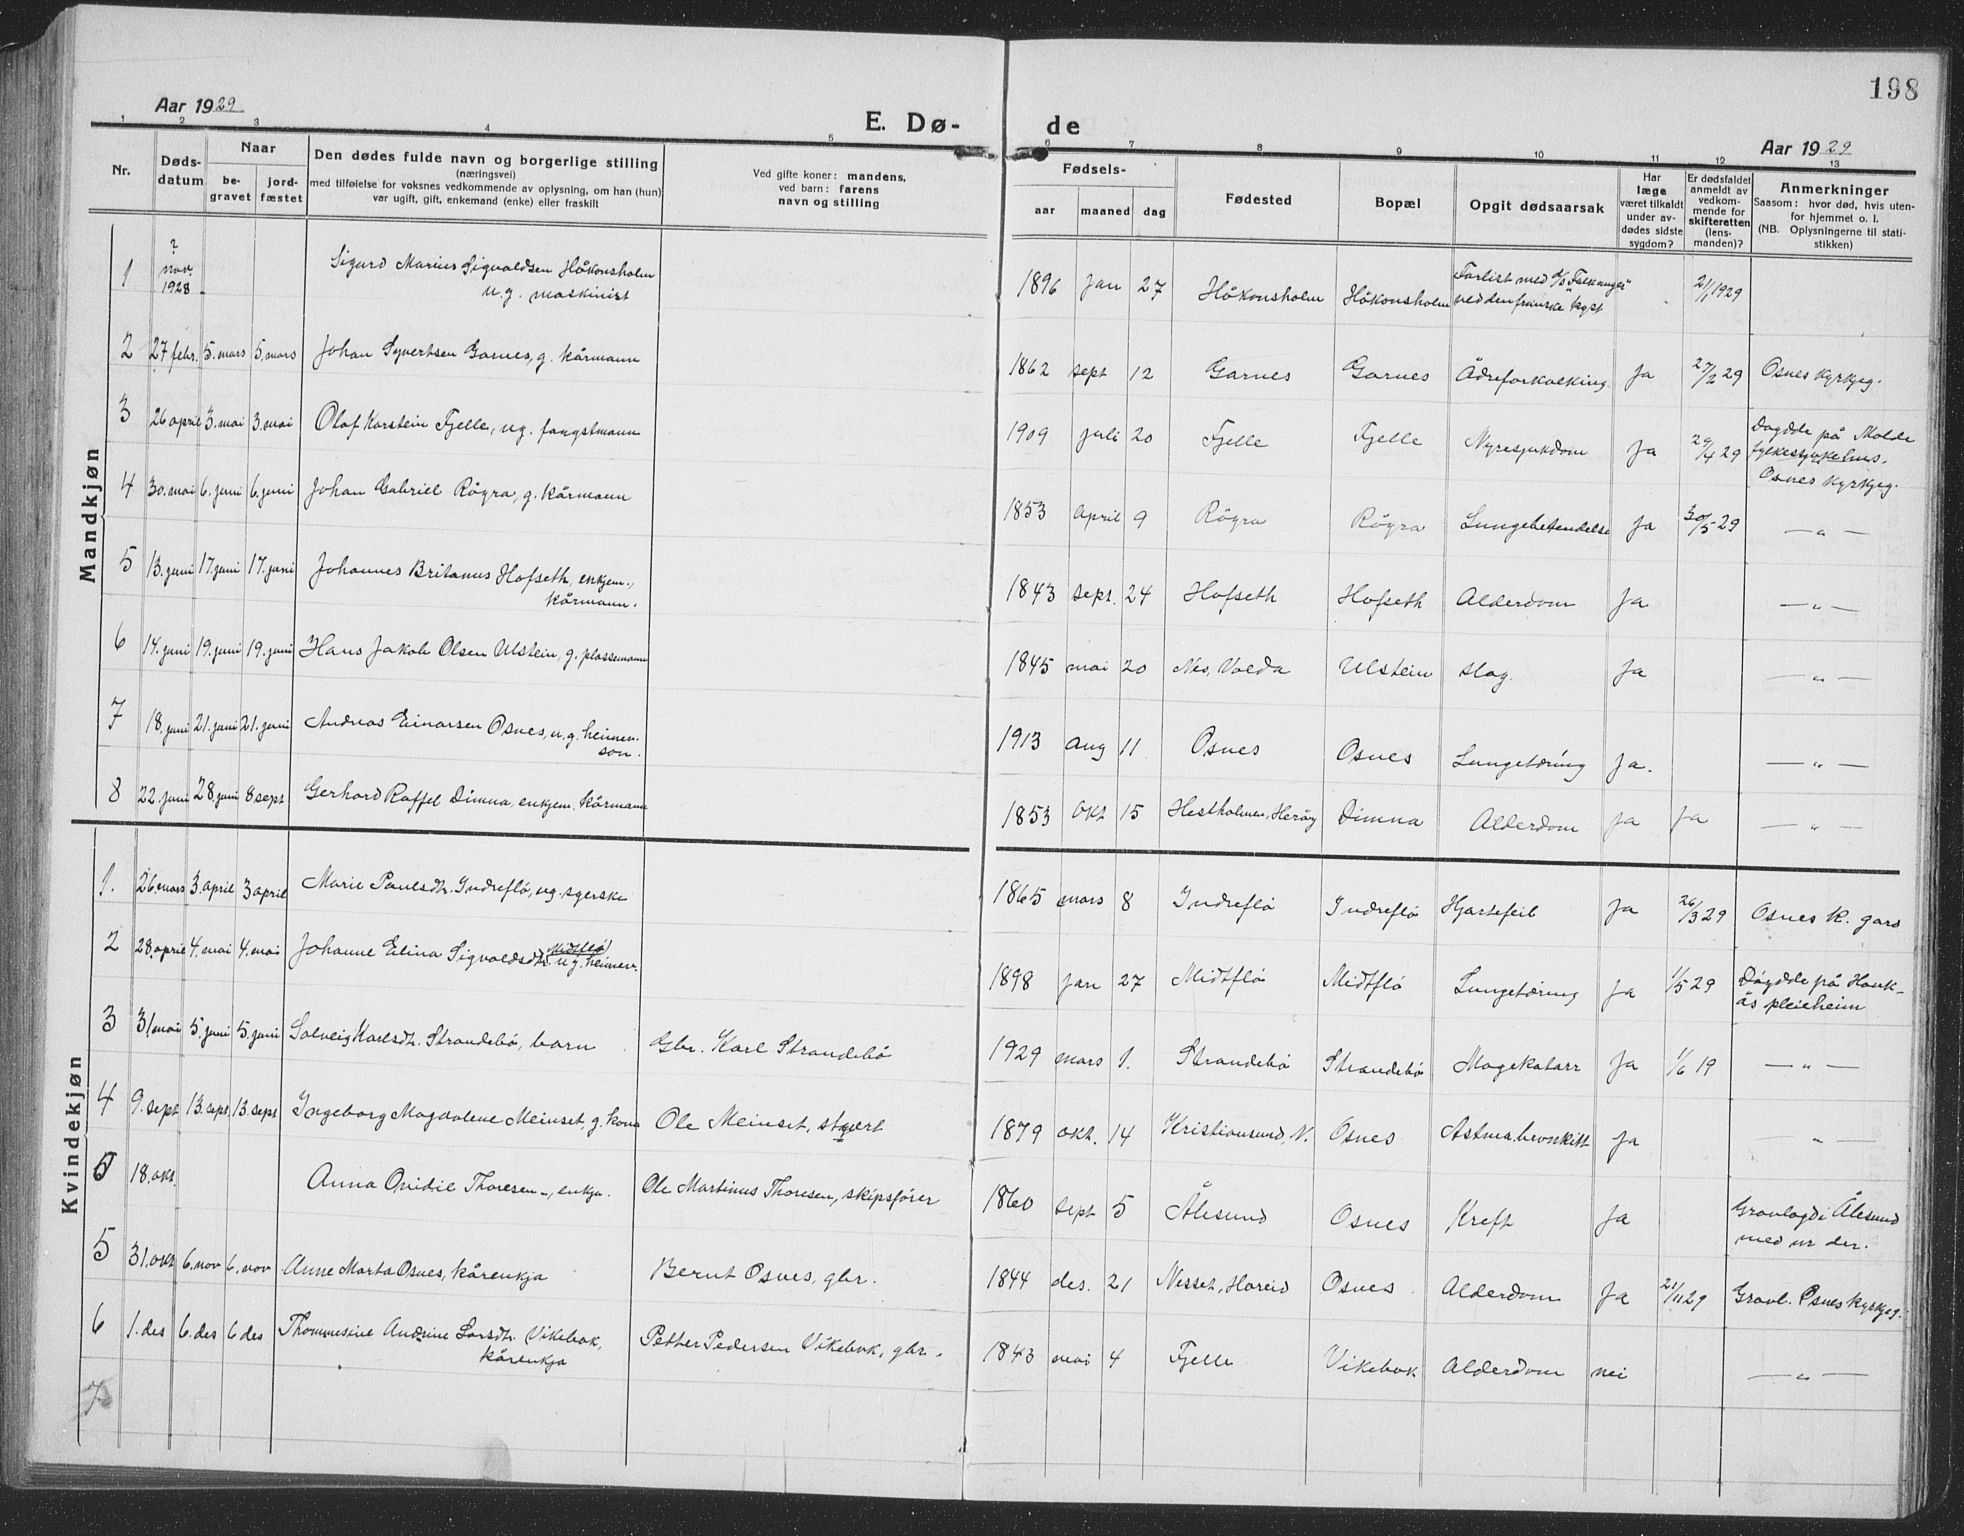 198
Aar 1929
E. Dø-
de
Aar 1929
1 2 3 4 5 6 7 8 9 10 11 12 13
Nr.
Døds-
datum
Naar
be-
gravet
jord-
fæstet
Den dødes fulde navn og borgerlige stilling
(næringsvei)
med tilføielse for voksnes vedkommende av oplysning, om han (hun)
var ugift, gift, enkemand (enke) eller fraskilt
Ved gifte koner: mandens,
ved barn: farens
navn og stilling
Fødsels-
aar
maaned
dag
Fødested
Bopæl
Opgit dødsaarsak
Har
læge
været tilkaldt
under av-
dødes sidste
sygdom?
Er dødsfaldet
anmeldt av
vedkom-
mende for
skifteretten
(lens-
manden)?
Anmerkninger
Saasom: hvor død, hvis uten-
for hjemmet o. l.
(NB. Oplysningerne til stati-
stikken)
Mandkjøn
1 ? nov. 1928 Sigurd Marius Sigvaldsen Håkonsholm
u.g. maskinist
1896 jan 27 Håkonsholm Håkonsholm Forlist med d/s "Falkanger"
ved den franske kyst 21/1 1929
2 27 febr. 5. mars 5. mars Johan Syvertsen Garnes, g. kårmann 1862 sept 12 Garnes Garnes Ådreforkalking Ja 27/2 29 Osnes kyrkjeg.
3 26 april 3. mai 3. mai Olaf Karstein Fjelle, ug. fangstmann 1909 juli 20 Fjelle Fjelle Nyresjukdom Ja 29/4 29 Døydde på Molde
fylkessjukehus.
Osnes kyrkjeg.
4 30. mai 6. juni 6. juni Johan Gabriel Røyra, g. kårmann 1853 april 9 Røyra Røyra Lungebetendelse Ja 30/5 29 — „ —
5 13. juni 17. juni 17. juni Johannes Britanus Hofseth, enkjem.,
kårmann.
1843 sept. 24 Hofseth Hofseth Alderdom Ja — „ —
6 14. juni 19. juni 19. juni Hans Jakob Olsen Ulstein, g. plassemann 1845 mai 20 Nes, Volda Ulstein slag. Ja — „ —
7 18. juni 21. juni 21. juni Andreas Einarsen Osnes, u.g. heimev.
son.
1913 aug 11 Osnes Osnes Lungetæring Ja. — „ —
8 22. juni 28. juni 8 sept Gerhard Raffel Dimna, enkjem. kårmann 1853 okt 15 Hestholmen, Herøy Dimna Alderdom Ja Ja — „ —
Kvindekjøn
1. 26. mars 3. april 3 april Marie Paulsdtr. Indreflø, ug. syerske 1865 mars 8 Indreflø Indreflø Hjartefeil Ja 26/3 29 Osnes k. gard
2 28. april 4. mai 4. mai Johanne Elina Sigvaldsdtr. Midtflø
u.g. heimev.
1898 jan 27 Midtflø Midtflø Lungetæring Ja 1/5 29 Døydde på Hauk-
ås pleieheim
3 31. mai 5. juni 5. juni Solveig Karlsdtr. Strandebø, barn Gbr. Karl Strandebø 1929 mars 1. Strandebø Strandebø Magekatarr Ja 1/6 19 — „ —
4 9. sept 13. sept. 13. sept Ingeborg Magdalene Meinset, g. kona Ole Meinset, stuert 1879 okt. 14 Kristiansund, N. Osnes Astma, bronkitt Ja — „ —
18. okt. Anna Ovidie Thoresen, enkja. Ole Martinus Thoresen, skipsfører 1860 sept 5 Ålesund Osnes Kreft Ja Gravlagd i Ålesund
med nr der.
5 31. okt 6. nov 6. nov Anne Marta Osnes, kårenkja Bernt Osnes, gbr. 1844 des. 21 Nesset, Hareid Osnes Alderdom Ja 21/11 29 Gravl. Osnes kyrkjeg.
6 1. des 6. des 6 des Thommesine Andrine Larsdtr. Vikebak,
kårenkja
Petter Pedersen Vikebak, gbr. 1843 mai 4 Fjelle Vikebak Alderdom nei — „ —
7